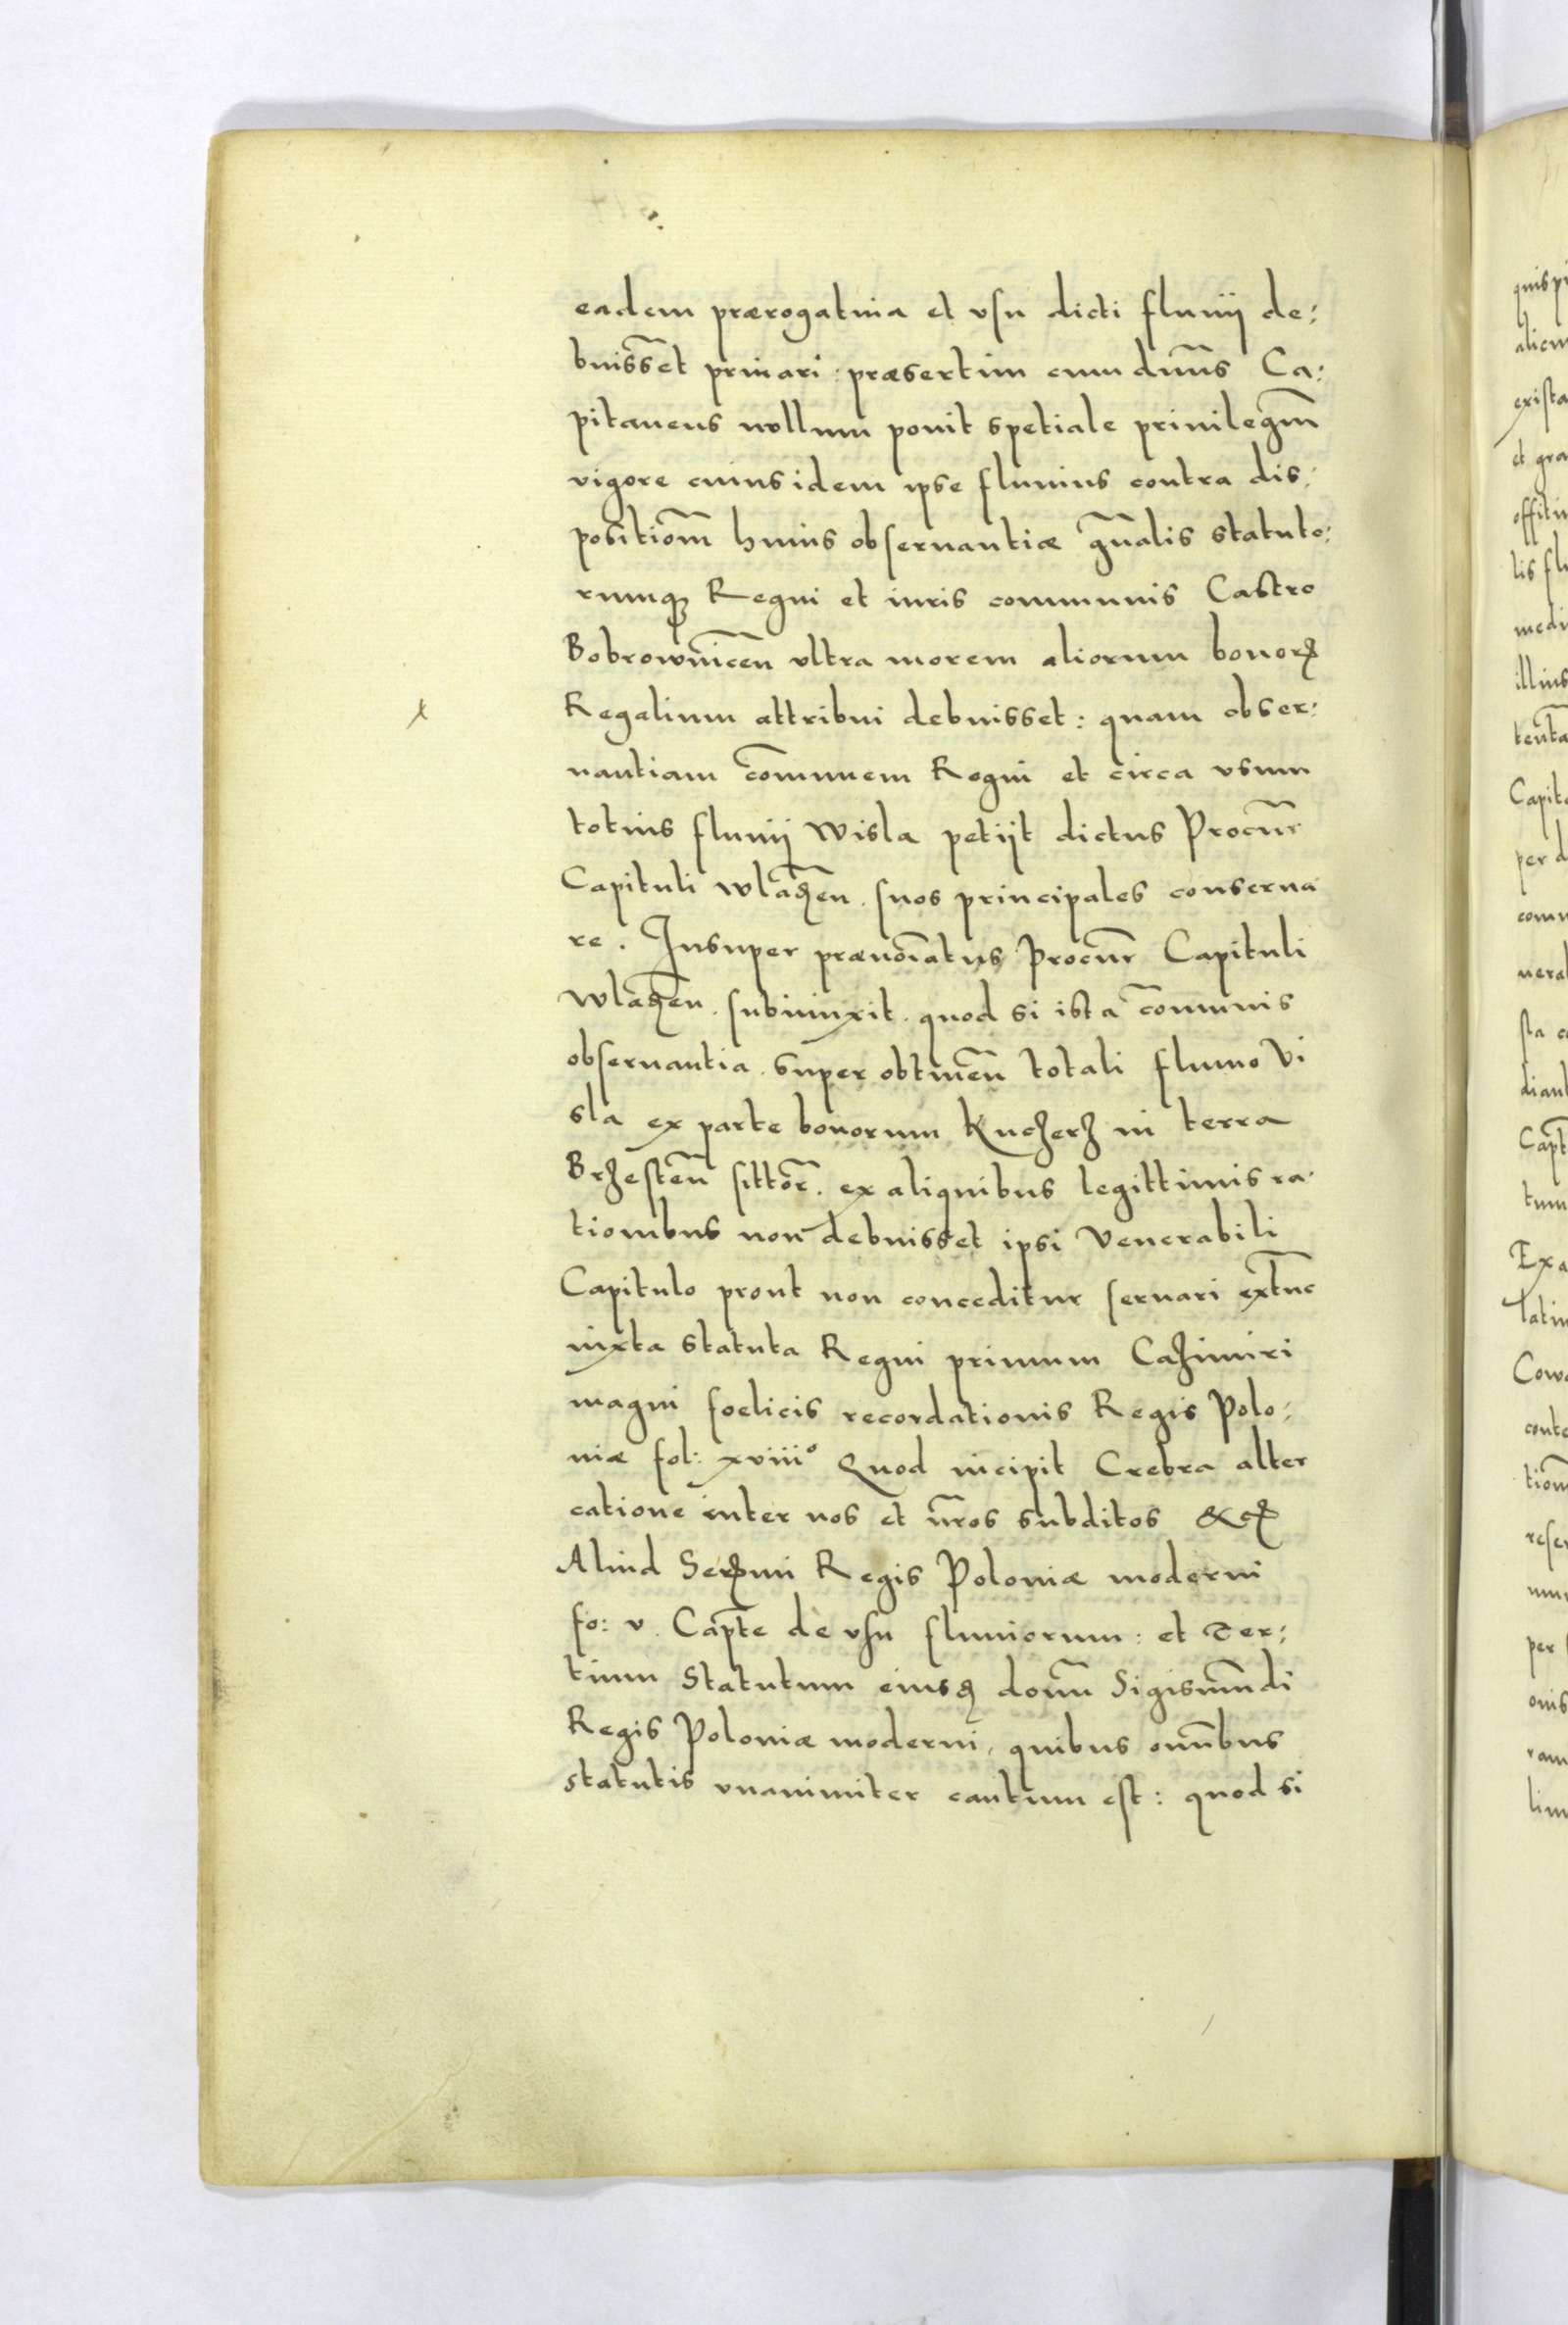 eadem prærogatiua et vsu dicti fluuij de:
buisset priuari : præsertim cum dnus Ca:
pitaneus nullum ponit spetiale priuilegm̄
vigore cuius idem ipse fluuius contra dis:
positiom̄ huius obseruantiæ gn̄alis statuto:
rumq Regni et iuris communis Castro
Bobrownicen̄ vltra morem aliorum bonorꝝ
x
Regalium attribui debuisset : quam obser:
uantiam com̄unem Regni et circa vsum
totius fluuij Wisla petijt dictus Procur̄
Capituli wladzen̄ . suos principales conserua
re . Insuper prænoīatus Procur̄ Capituli
wladzen̄ . subiunxit . quod si ista com̄unis
obseruantia . super obtinen̄ totali fluuio Vi
sla ex parte bonorum Kuczerz in terra
Brzesten̄ sittor̄ . ex aliquibus legittimis ra:
tionibus non debuisset ipsi Venerabili
Capitulo prout non conceditur seruari extūc
iuxta statuta Regni primum Cazimiri
magni foelicis recordationis Regis Polo:
niæ fol: xviiij° Quod incipit Crebra alter
catione inter nos et nr̄os subditos &cꝫ
Aliud Serꝫmi Regis Poloniæ moderni
fo: v. Capt̄e de vsu fluuiorum : et Ter:
tium Statutum eiusꝫ domn̄ Sigismūdi
Regis Poloniæ moderni, quibus omn̄bus
statutis vnanimiter cautum est : quod si